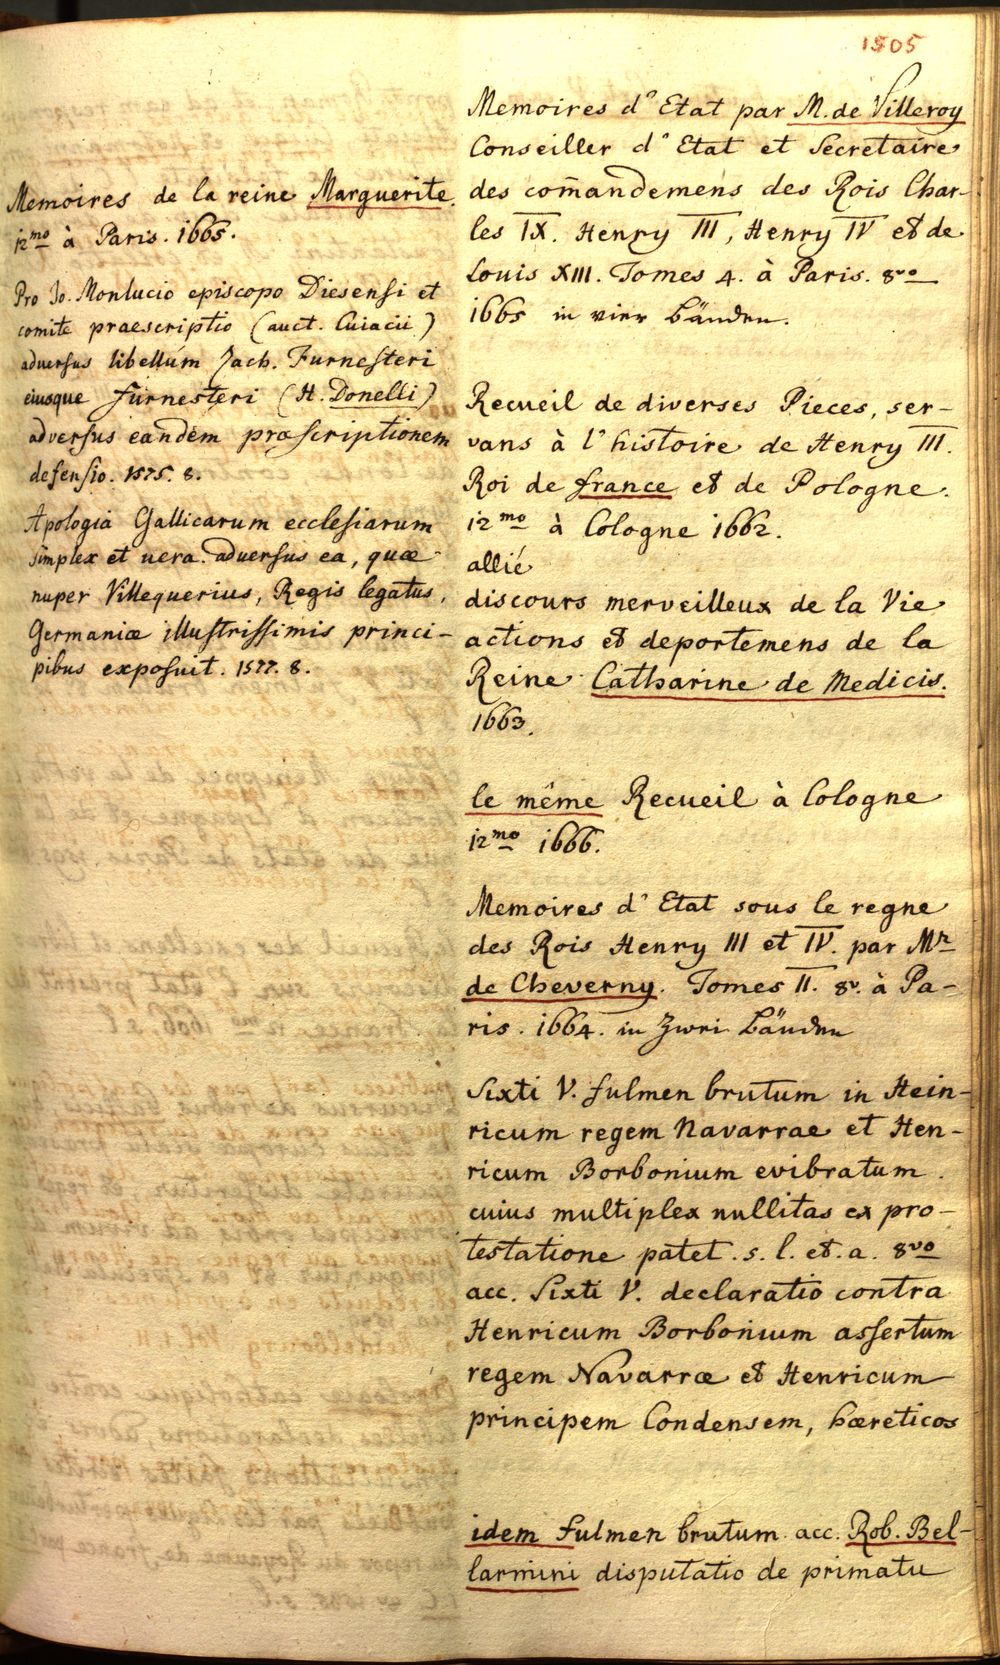 1505
Memoires de la reine Marguerite.
12mo à Paris. 1665.
Pro Jo. Monlucio episcopo Diesensi et
comite praescriptio (auct. Cuiacii)
adversus libellum Zach. Furnesteri
eiusque furnesteri (H. Donelli)
adversus eandem præscriptionem
defensio. 1575. 8.
Apologia Gallicarum ecclesiarum
simplex et uera. aduersus ea, quæ
nuper Villequerius, Regis legatus,
Germaniæ illustrissimis princi-
pibus exposuit. 1577. 8.
Memoires d'Etat par M. de Villeroy
Conseiller d'Etat et Secretaire
des com̄andemens des Rois Char-
les IX. Henry III, Henry IV et de
Louis XIII. Tomes 4. à Paris. 8vo
1665 in vier Bänden.
Recueil de diverses Pieces, ser-
vans à l'histoire de Henry III.
Roi de france et de Pologne.
12mo à Cologne 1662.
allié
discours merveilleux de la Vie
actions et deportemens de la
Reine Catharine de Medicis.
1663.
le même Recueil à Cologne
12mo 1666.
Memoires d'Etat sous le regne
des Rois Henry III et IV. par Mr
de Cheverny. Tomes II. 8v. à Pa-
ris. 1664. in Zwei Bänden
Sixti V. fulmen brutum in Hein-
ricum regem Navarrae et Hen-
ricum Borbonium evibratum.
cuius multiplex nullitas ex pro-
testatione patet. s. l. et. a. 8vo
acc. Sixti V. declaratio contra
Henricum Borbonium assertum
regem Navarræ et Henricum
principem Condensem, hæreticos
idem fulmen brutum. acc. Rob. Bel-
larmini disputatio de primatu